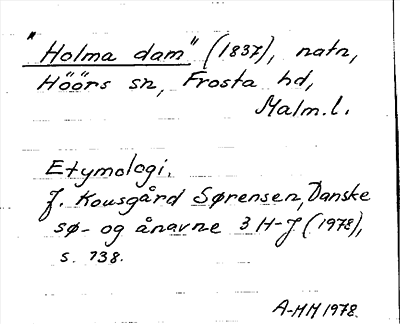 "Holma dam" (1837), natn,
Höörs sn, Frosta hd,
Malm.l.
Etymologi.
J. Kousgård Sørensen, Danske
sø- og ånavne 3 H-J (1978),
s. 138.
A-HH 1978.